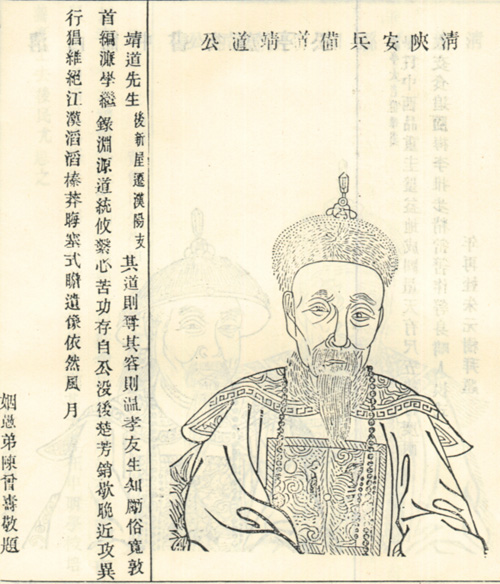 清陝安兵備靖道公
靖道先生後新屋遷漢陽支其道則尊其容則溫孝友生知勵俗寬敦
首編濂學繼錄淵源道統攸繫心苦功存自公沒後楚芳銷歇晚近攻異
行猖維絕江漢滔滔榛莽晦塞式瞻遺像依然風月
姻愚弟陳曾壽敬題